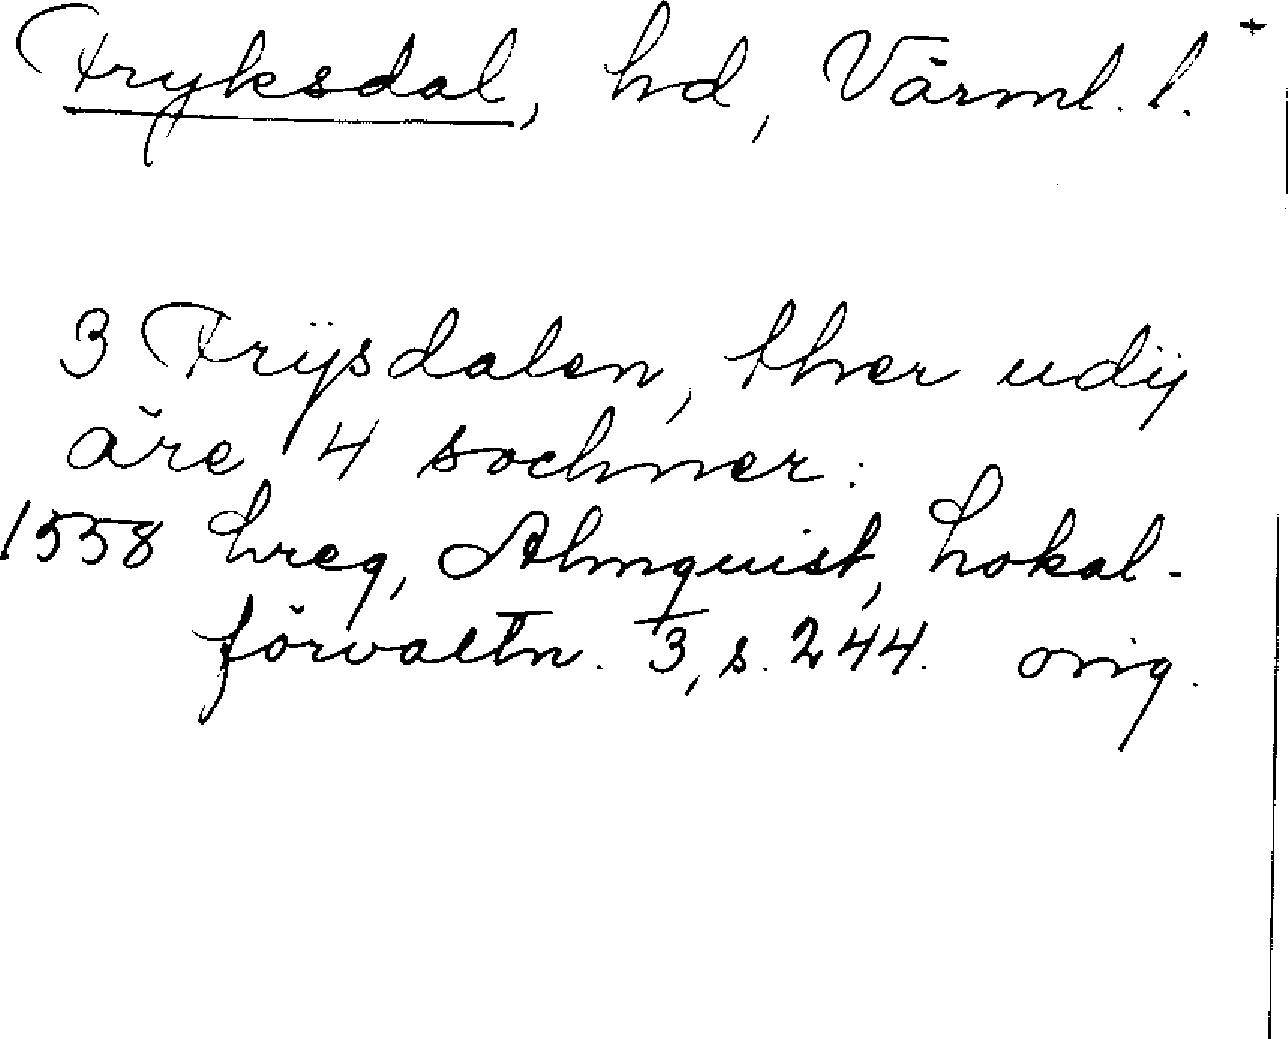 Fryksdal, hd, Värml. l. +
3 Frÿsdalen, ther udÿ
äre 4 sochner:
1558 Lreg, Almquist, Lokal-
förvaltn. 3, s. 244. orig.